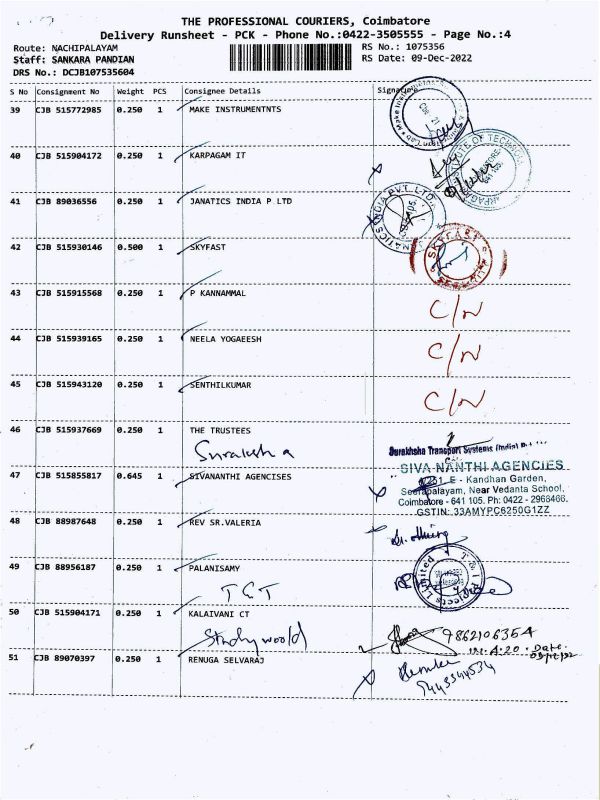 THE PROFESSIONAL COURIERS, Coimbatore
Delivery Runsheet - PCK - Phone No.:0422-3505555 - Page No.:4
Route: NACHIPALAYAM
RS No.: 1075356
Staff: SANKARA PANDIAN
RS Date: 09-Dec-2022
DRS No.: DCJB107535604
S No Consignment No Weight PCS Consignee Details Signature
39 CJB 515772985 0.250 1 MAKE INSTRUMENTNTS
40 CJB 515904172 0.250 1 KARPAGAM IT
41 CJB 89036556 0.250 1 JANATICS INDIA P LTD
42 CJB 515930146 0.500 1 SKYFAST
SKYFAST
43 CJB 515915568 0.250 1 P KANNAMMAL
C/N
44 CJB 515939165 0.250 1 NEELA YOGAEESH
C/N
45 CJB 515943120 0.250 1 SENTHILKUMAR
C/N
46 CJB 515937669 0.250 1 THE TRUSTEES
Suraksha
Surakhsha Transport Systems (India)
47 CJB 515855817 0.645 1 SIVANANTHI AGENCISES
SIVA NANTHI AGENCIES
E - Kandhan Garden,
Seerapalayam, Near Vedanta School,
Coimbatore - 641 105. Ph: 0422 - 2968466.
GSTIN: 33AMYPC6250G1ZZ
48 CJB 88987648 0.250 1 REV SR.VALERIA
49 CJB 88956187 0.250 1 PALANISAMY
T&T
50 CJB 515904171 0.250 1 KALAIVANI CT
Study world
9862106354
Date.
51 CJB 89070397 0.250 1 RENUGA SELVARAJ
Renuka
9443344534